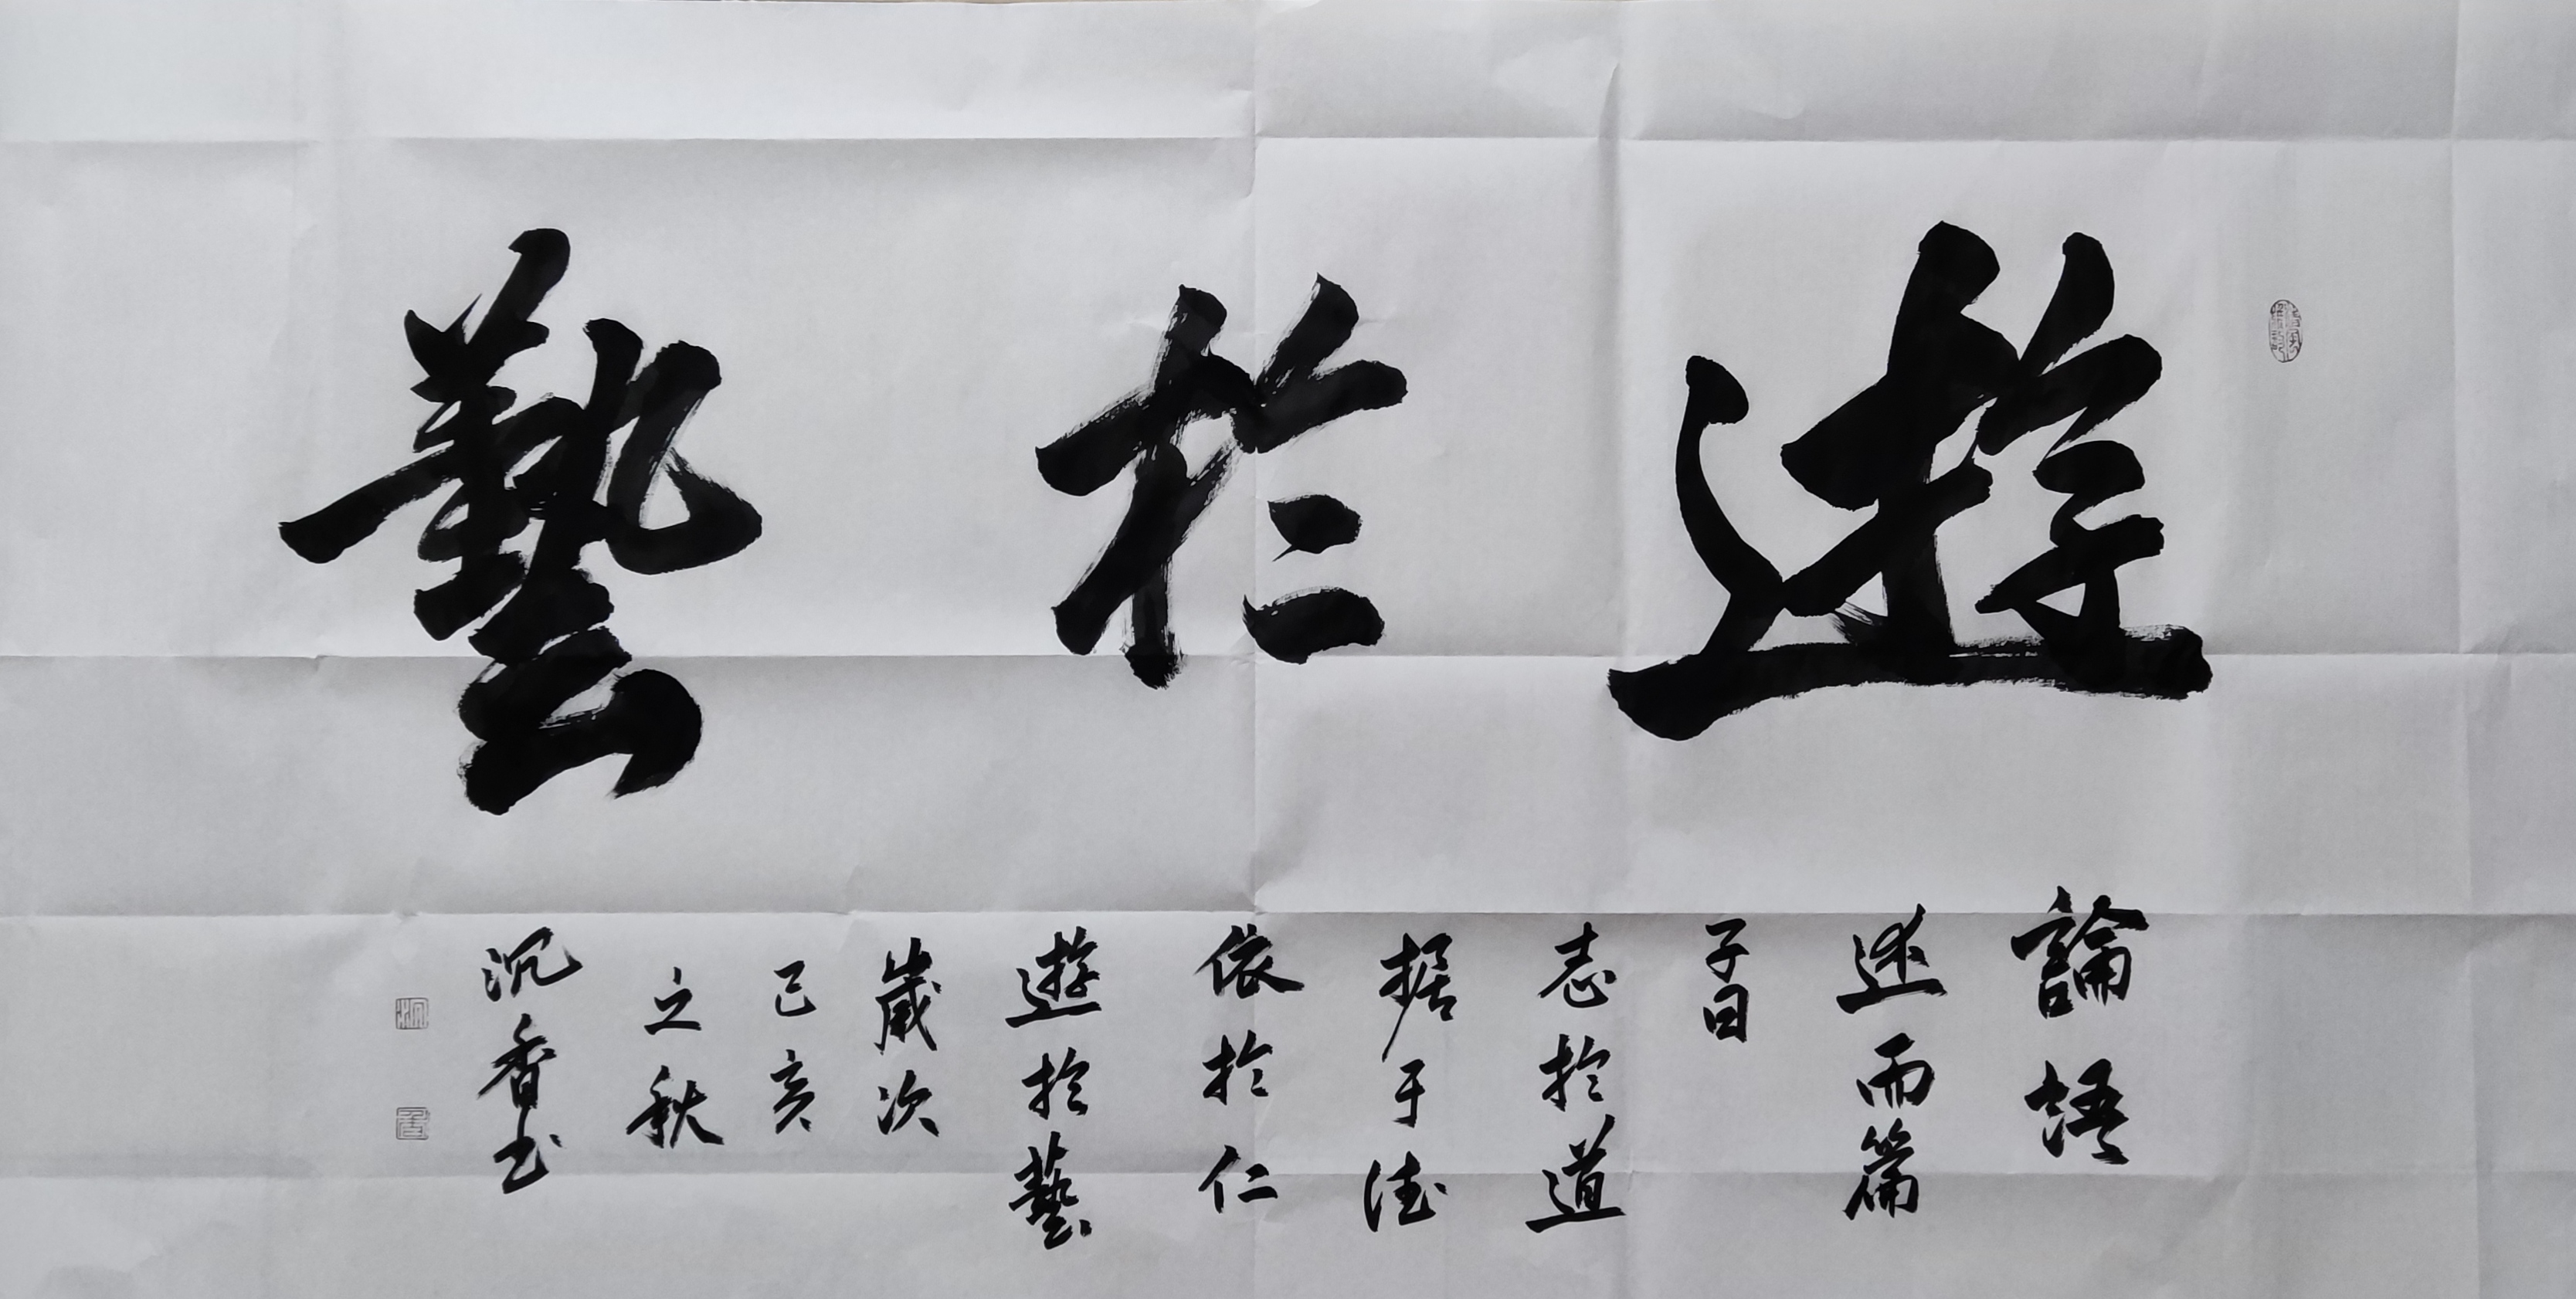 遊於藝
論語
述而篇
子曰
志於道
據于德
依於仁
遊於藝
歲次
己亥
之秋
沉香书